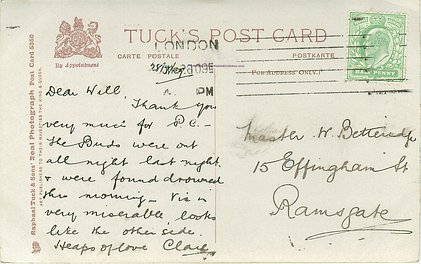 TUCK'S POST CARD
CARTE POSTALE
POSTKARTE
By Appointment
(FOR ADDRESS ONLY.)
Raphael Tuck & Sons' Real Photograph Post Card 5350
ART PUBLISHERS TO THEIR MAJESTIES THE KING & QUEEN.
LONDON
PM
HALF PENNY
Dear Will,
Thank you
very much for P.C. –
The Buds were out
all night last night
& were found drowned
this morning – Vis is
very miserable, looks
like the other side.
Heaps of love Clare
Master W. Betteridge
15 Effingham St
Ramsgate